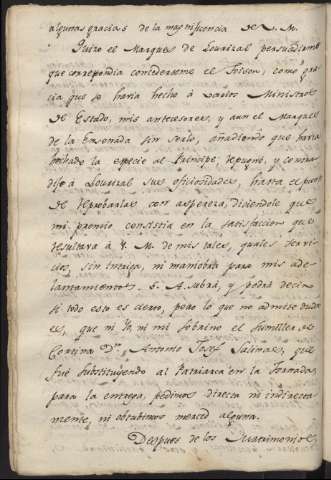 algunas gracias de la magnificencia de S. M.
Quiso el Marques de Lourizal persuadirme
que correspondia concederseme el Toison, como gra
cia que se havia hecho à varios Ministros
de Estado, mis antecesores, y aun el Marques
de la Ensenada sin serlo, añadiendo que havia
hechado la especie al Principe; depuse, y contra
dije à Lourizal sus oficiosidades, hasta el punto
de reprobarlas con aspereza, diciendole que
mi premio consistia en la satisfaccion que
resultara à S. M. de mis tales, quales servi
cios, sin intriga, ni maniobra para mis ade
lantamientos. S. A. sabrà, y podrà decir
si todo esto es cierto, pero lo que no admite duda
es, que ni Yo, ni mi sobrino el Sumiller de
Cortina Dn. Antonio Josef Salinas, que
fuè substituyendo al Patriarca en la Jornada,
para la entrega, pedimos directa ni indirecta
mente, ni obtubimos merced alguna.
Despues de los Matrimonios